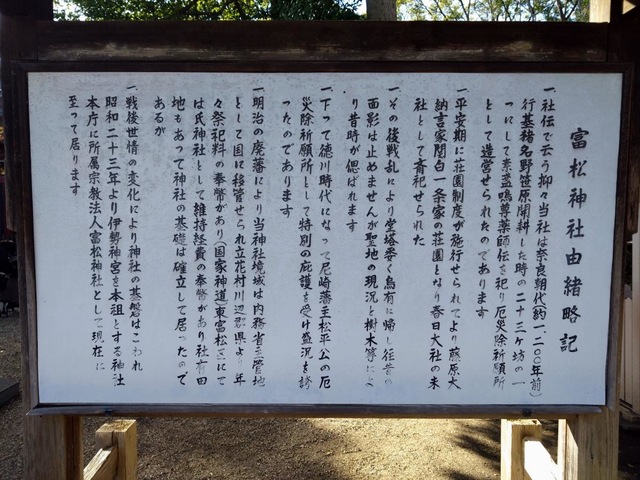 富松神社由緒略記
一社伝で云う抑々当社は奈良朝代(約一、二〇〇年前)
行基猪名野笹原開耕した時の二十三ヶ坊の一
つにして素盞嗚尊薬師伝を祀り厄災除祈願所
として造営せられたのであります
一平安期に荘園制度が施行せられてより藤原大
納言家関白一条家の荘園となり春日大社の末
社として斉祀せられた
一その後戦乱により堂塔悉く烏有に帰し往昔の
面影は止めませんが聖地の現況と樹木等により
り昔時が偲ばれます
一下って徳川時代になって尼崎藩主松平公の厄
災除祈願所として特別の庇護を受け盛況を誇
ったのであります
一明治の廃藩により当神社境域は内務省主管地
として国に移管せられ立花村川辺郡県より年
々祭祀料の奉幣があり(国家神道)東富松区にて
は氏神社として維持経費の奉幣があり社有田
地もあって神社の基礎は確立して居ったので
あるが
一戦後世情の変化により神社の基盤はこわれ
昭和二十三年より伊勢神宮を本祖とする神社
本庁に所属宗教法人富松神社として現在に
至って居ります